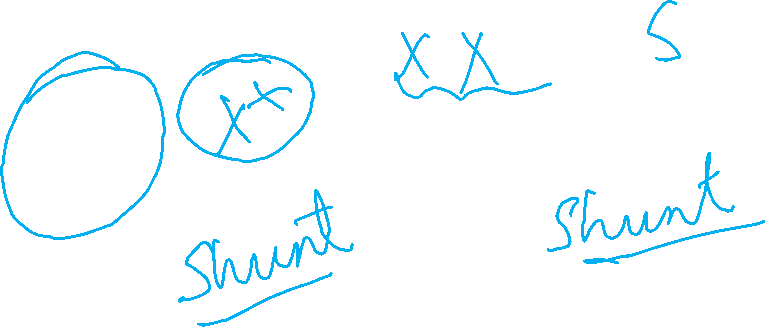 XX XX S
Shunt Shunt